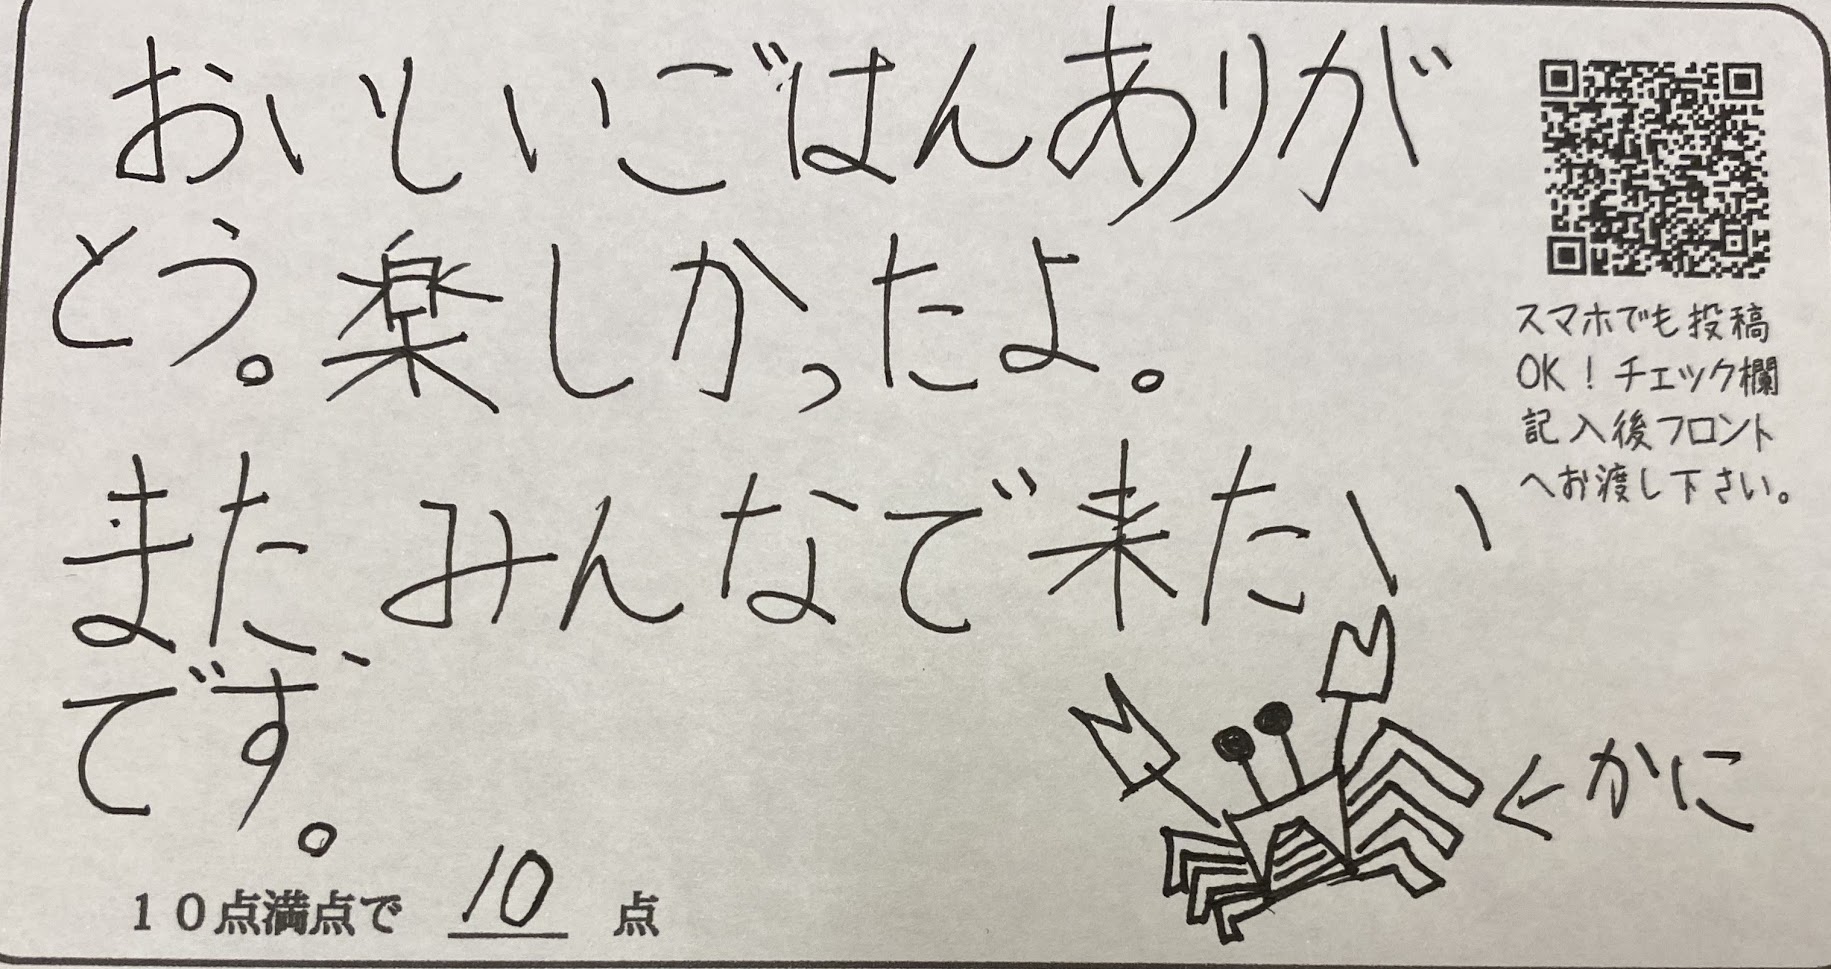 おいしいごはんありが
とう。楽しかったよ。
また、みんなで来たい
です。
スマホでも投稿
OK！チェック欄
記入後フロント
へお渡し下さい。
←かに
10点満点で 10 点